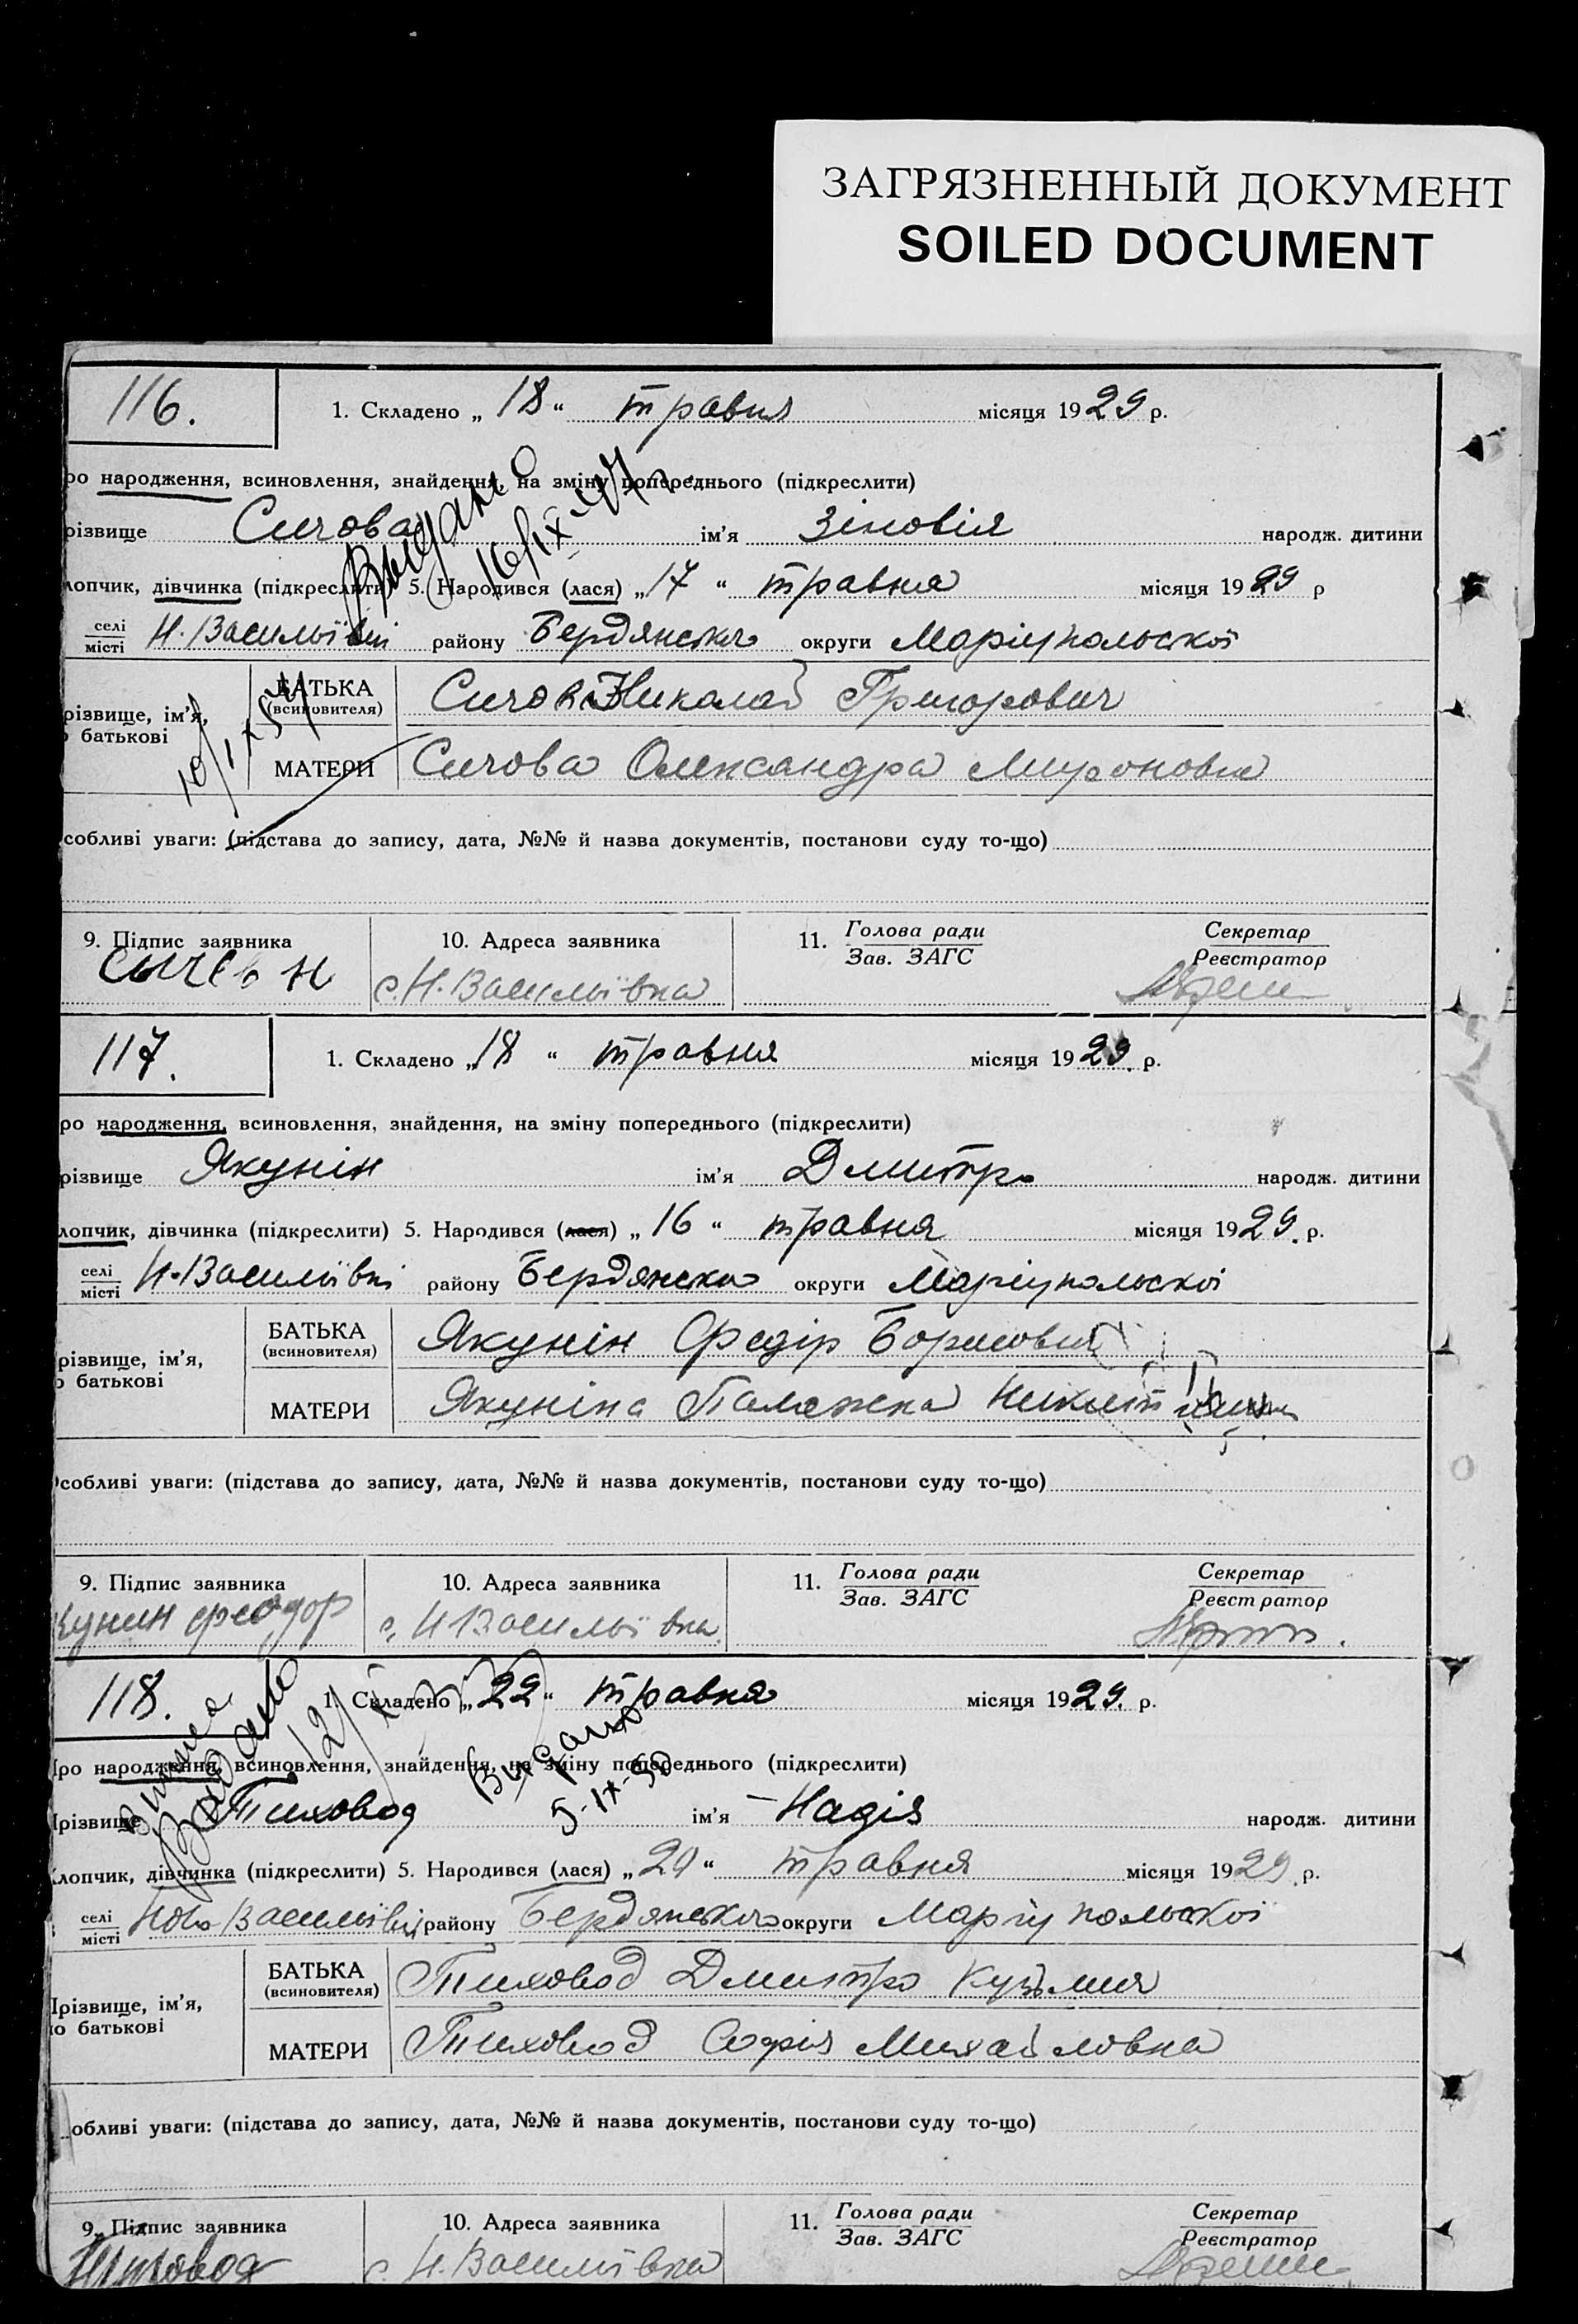 ЗАГРЯЗНЕННЫЙ ДОКУМЕНТ
SOILED DOCUMENT
116.
1. Складено „ 18 “ травня місяця 1929 р.
ро народження, всиновлення, знайдення, на зміну попереднього (підкреслити)
Выдано
16/IX-47 г.
різвище Сичова ім'я Зіновія народж. дитини
лопчик, дівчинка (підкреслити) 5. Народився (лася) „ 17 “ травня місяця 1929 р
селі
місті Н. Васильївці району Бердянського округи Маріупольскої
різвище, ім'я,
о батькові
БАТЬКА
(всиновителя) Сичов Николай Григорович
МАТЕРИ Сичова Олександра Мироновна
собливі уваги: (підстава до запису, дата, №№ й назва документів, постанови суду то-що)
9. Підпис заявника 10. Адреса заявника 11. Голова ради
Зав. ЗАГС Секретар
Реєстратор
Сычев Н с. Н. Васильївка
117.
1. Складено „ 18 “ травня місяця 1929. р.
ро народження, всиновлення, знайдення, на зміну попереднього (підкреслити)
різвище Якунін ім'я Дмитро народж. дитини
лопчик, дівчинка (підкреслити) 5. Народився (лася) „ 16 “ травня місяця 1929. р.
селі
місті Н-Васильївці району Бердянского округи Маріупольскої
різвище, ім'я,
о батькові
БАТЬКА
(всиновителя) Якунін Федір Борисович
МАТЕРИ Якуніна Палажка
собливі уваги: (підстава до запису, дата, №№ й назва документів, постанови суду то-що)
9. Підпис заявника 10. Адреса заявника 11. Голова ради
Зав. ЗАГС Секретар
Реєстратор
кунин феодор с. Н Васильївка.
118.
1. Складено „ 22 “ травня місяця 1929. р.
Про народження, всиновлення, знайдення, на зміну попереднього (підкреслити)
Выдано
5-IX-50
Прізвище Тиховод ім'я Надія народж. дитини
лопчик, дівчинка (підкреслити) 5. Народився (лася) „ 20 “ травня місяця 1929. р.
селі
місті Ново Васильївці району Бердянського округи Маріупольскої
Прізвище, ім'я,
по батькові
БАТЬКА
(всиновителя) Тиховод Дмитро Кузьмич
МАТЕРИ Тиховод Софія Михайловна
обливі уваги: (підстава до запису, дата, №№ й назва документів, постанови суду то-що)
9. Підпис заявника 10. Адреса заявника 11. Голова ради
Зав. ЗАГС Секретар
Реєстратор
с. Н. Васильївка